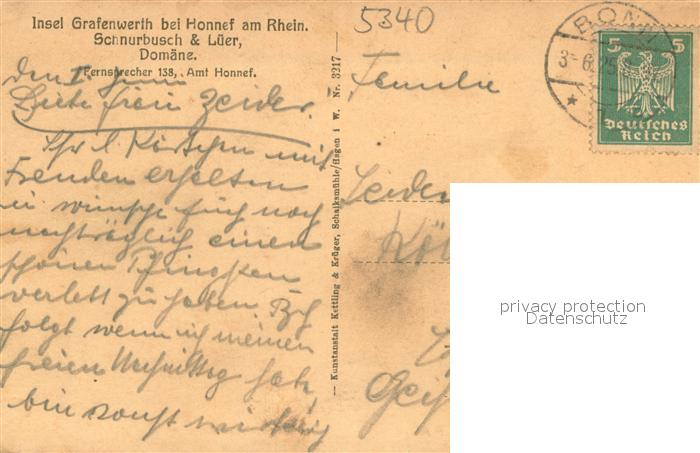 Insel Grafenwerth bei Honnef am Rhein.
Schnurbusch & Lüer,
Domäne.
Fernsprecher 138, Amt Honnef.
den Juni
Liebe Frau Zeider.
Ihr l. Kärtchen mit
Freuden erhalten
u wünsche euch noch
nachträglich einen
schönen Pfingsten
verlebt zu haben. Bf
folgt wenn ich meinen
freien Nachmittag habe,
bin sonst
— Kunstanstalt Kettling & Krüger, Schalksmühle/Hagen i W. Nr. 3217 —
5340
Familie
Zeider
Köl
BONN
3-6.25
5 5
Deutsches
Reich
privacy protection
Datenschutz